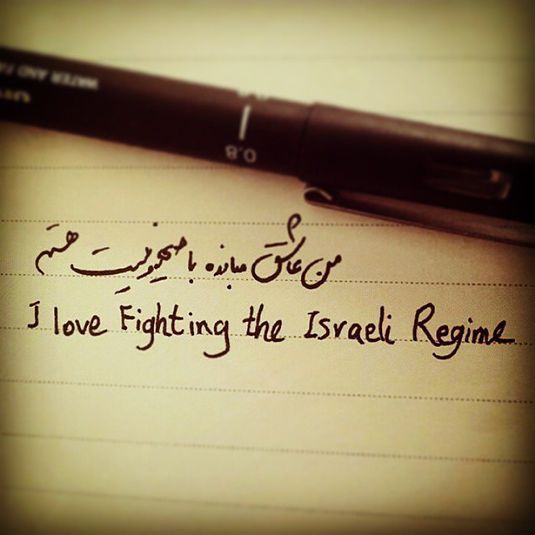 WATER AND FA
uni
0.8
من عاشق مبارزه با صهیونیست هستم
I love Fighting the Israeli Regime